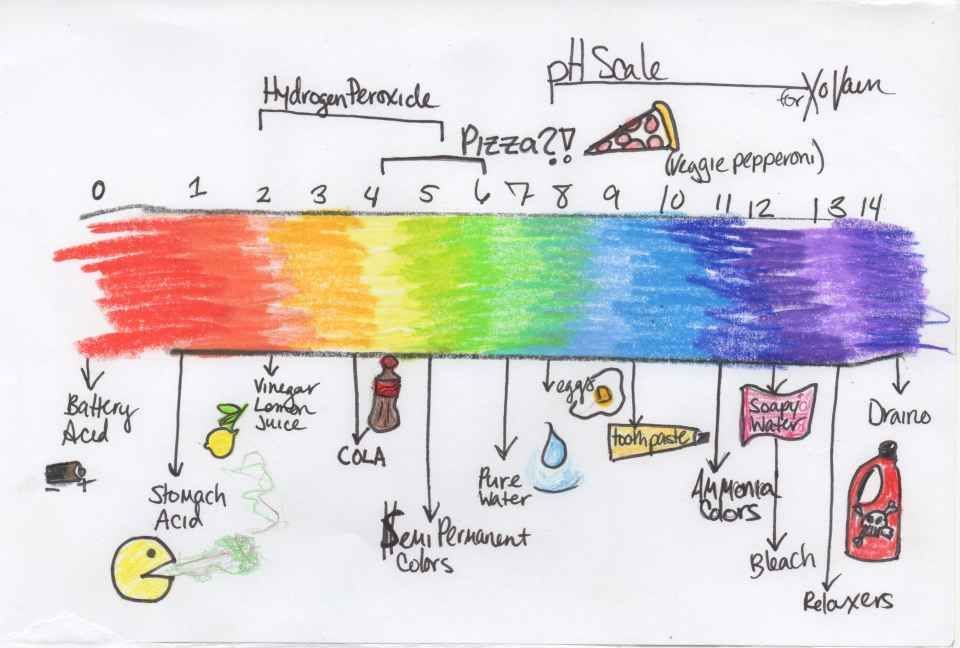 pH Scale
for XoVain
Hydrogen Peroxide
Pizza?!
(veggie pepperoni)
0 1 2 3 4 5 6 7 8 9 10 11 12 13 14
Battery
Acid
- +
Stomach
Acid
Vinegar
Lemon
Juice
COLA
Semi Permanent
Colors
Pure
Water
eggs
toothpaste
Ammonia
Colors
Soapy
Water
Bleach
Relaxers
Draino